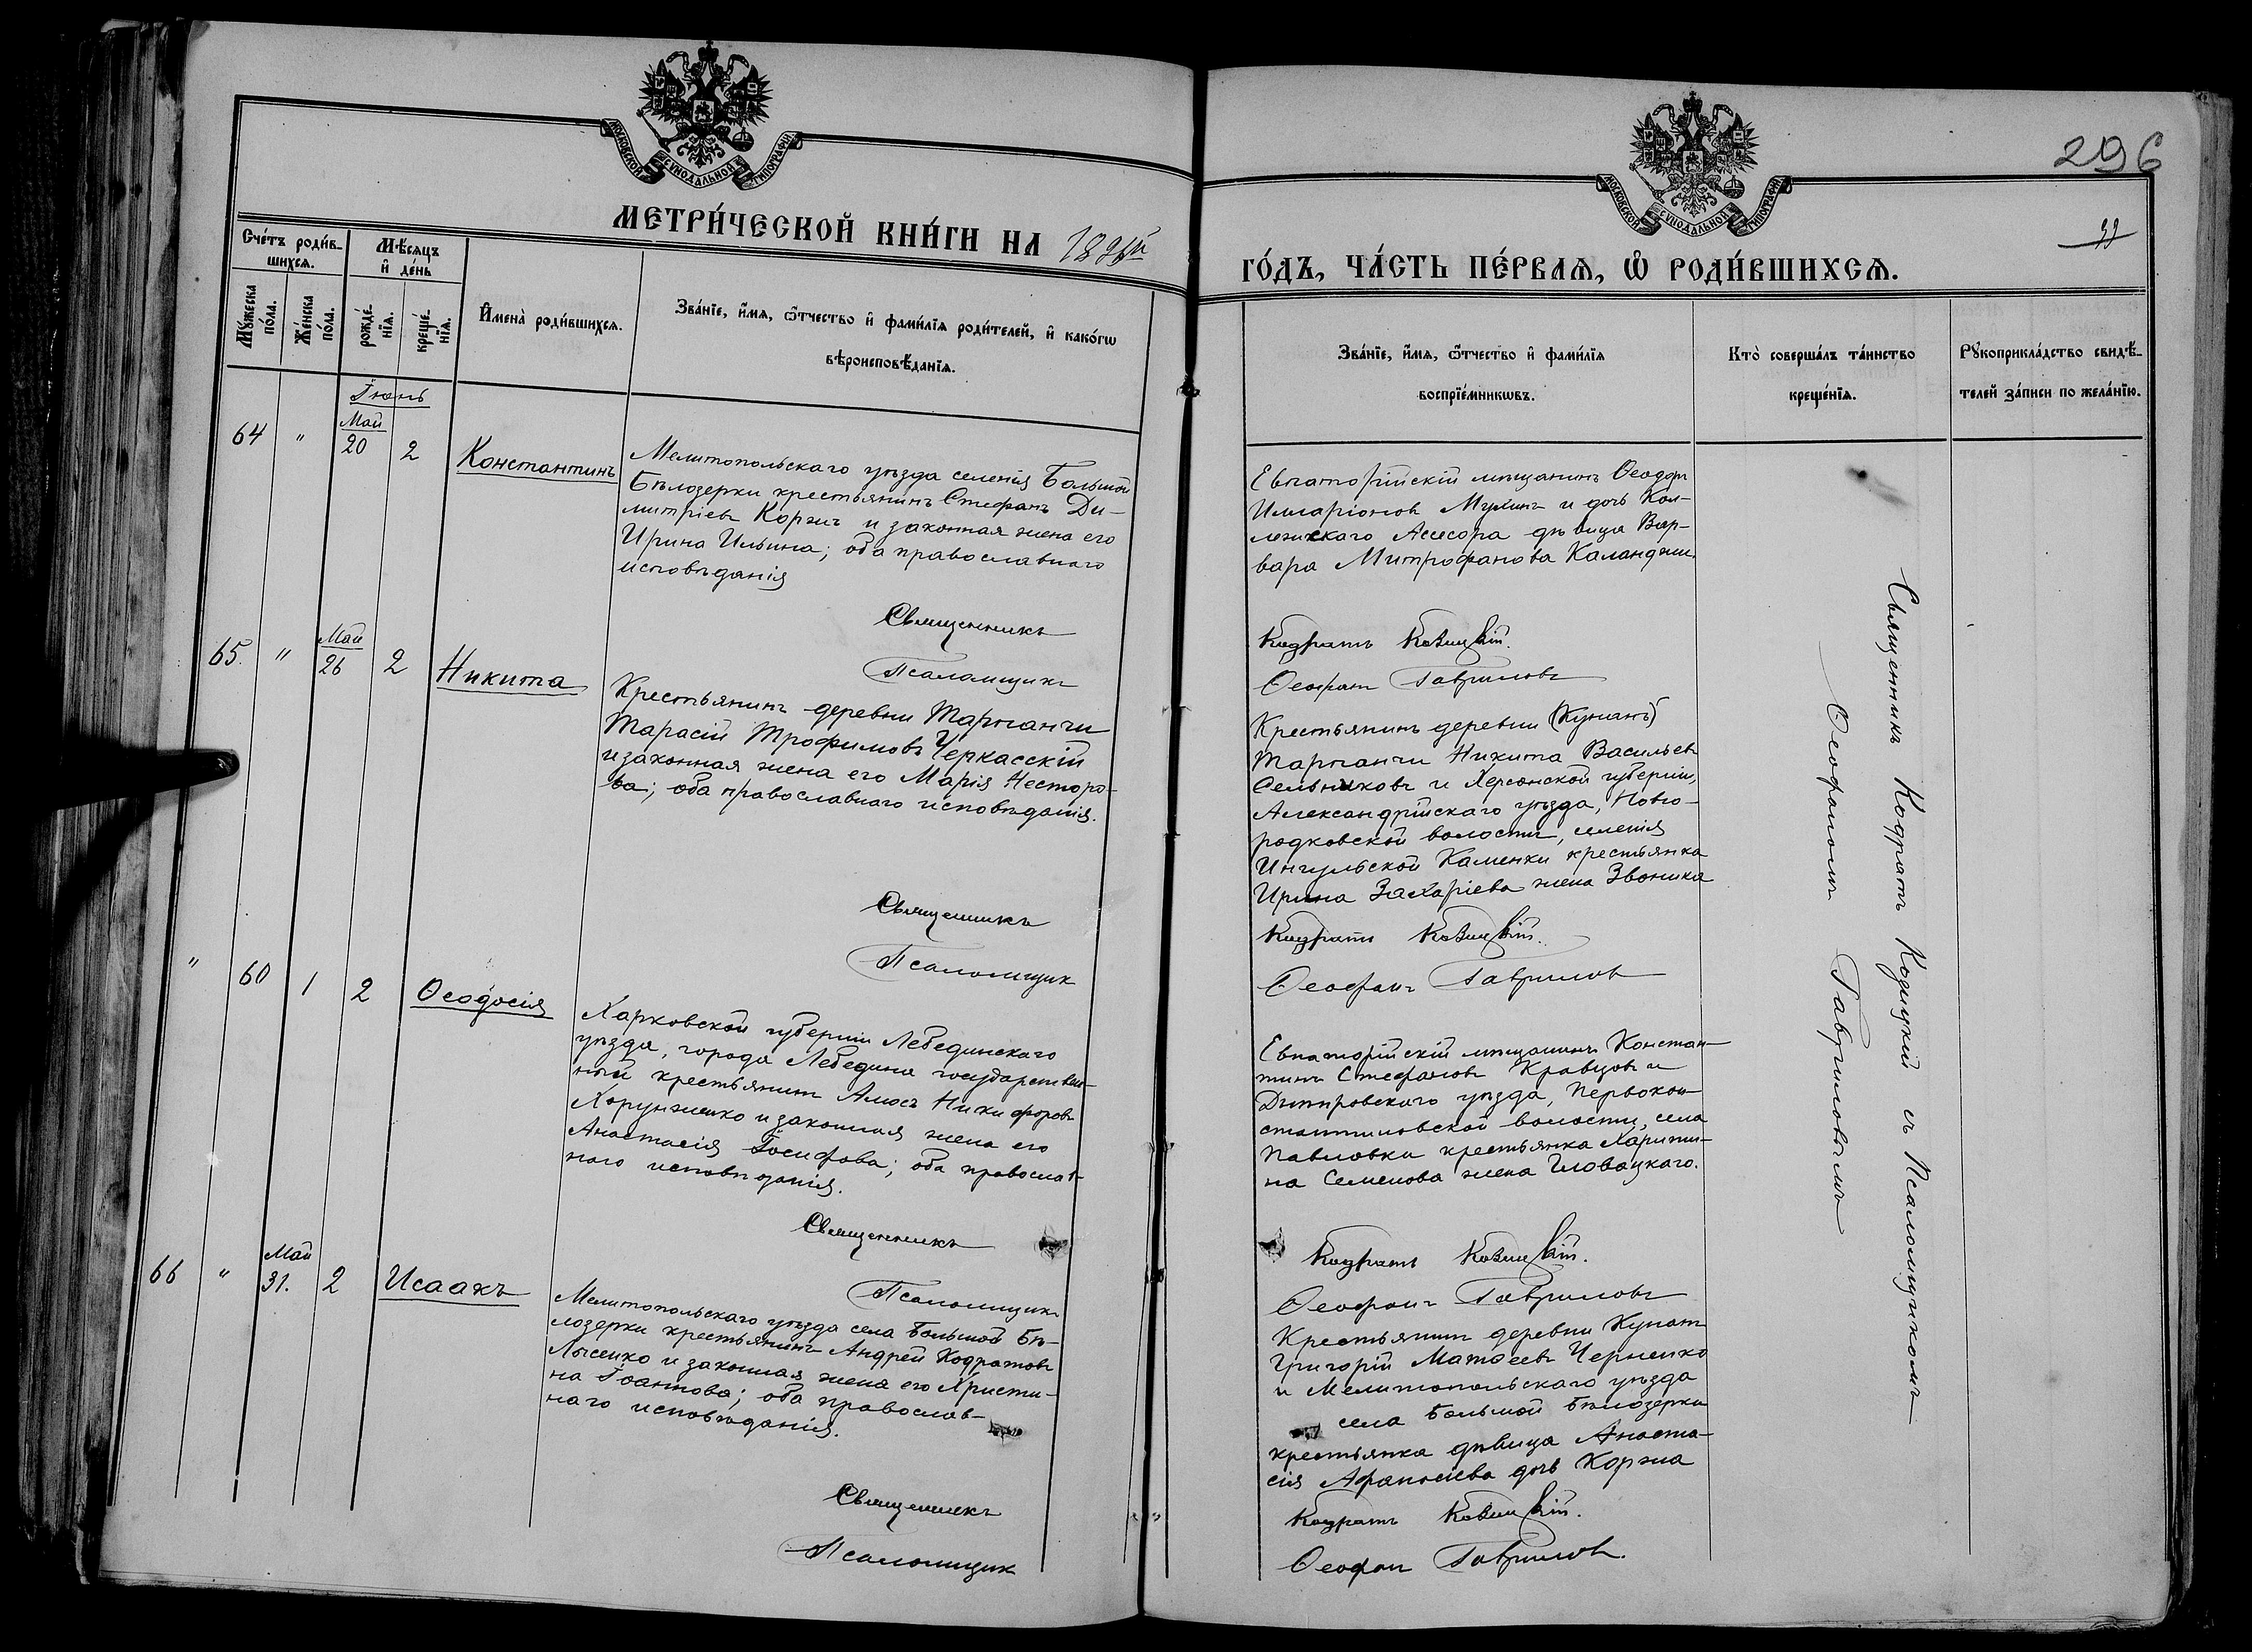 МОСКОВСКОЙ СУНОДАЛЬНОЙ ТИПОГРАФІИ
МЕТРИ́ЧЕСКОЙ КНИ́ГИ НА
Сче́тъ роди́в-
шихсѧ.
Мѣ́сяцъ
и҆ де́нь
Мꙋ́жеска
по́ла.
Же́нска
по́ла.
рожде́-
нїѧ.
креще́-
нїѧ.
И҆мена̀ роди́вшихсѧ.
Зва́нїе, и҆́мѧ, ѻ҆́тчество и҆ фами́лїѧ роди́телей, и҆ како́гѡ
вѣроисповѣ́данїѧ.
Іюнь
64 " Май 20 2 Константинъ
Мелитопольскаго уѣзда селенія Большой
Бѣлозерки крестьянинъ Стефанъ Ди-
митріевъ Коржъ и законная жена его
Ирина Ильина; оба православнаго
исповѣданія
Священникъ
Псаломщикъ
65. " Май 26 2 Никита
Крестьянинъ деревни Тарпанчи
Тарасій Трофимовъ Черкасскій
и законная жена его Марія Несторо-
ва; оба православнаго исповѣданія.
Священникъ
Псаломщик
" 60 1 2 Ѳеодосія
Харковской губерніи Лебединскаго
уѣзда, города Лебедина государствен-
ный крестьянинъ Амосъ Никифоровъ
Хорунженко и законная жена его
Анастасія Іосифова; оба православ-
наго исповѣданія.
Священникъ
Псаломщикъ
66 " Май 31. 2 Исаакъ
Мелитопольскаго уѣзда села Большой Бѣ-
лозерки крестьянинъ Андрей Кодратовъ
Лысенко и законная жена его Христи-
на Іоаннова; оба православ-
наго исповѣданія.
Священникъ
Псаломщик
МОСКОВСКОЙ СУНОДАЛЬНОЙ ТИПОГРАФІИ
296
ГО́ДЪ, ЧА́СТЬ ПЕ́РВАѦ, Ѡ҆ РОДИ́ВШИХСѦ.
Зва́нїе, и҆́мѧ, ѻ҆́тчество и҆ фами́лїѧ
воспрїе́мникѡвъ.
Кто̀ соверша́лъ та́инство
креще́нїѧ.
Рꙋкоприкла́дство свидѣ́-
телей за́писи по жела́нїю.
Евпаторійскій мѣщанинъ Ѳеодоръ
Илларіоновъ Мухинъ и дочь Кол-
лежскаго Асесора дѣвица Вар-
вара Митрофанова Каланджи.
Кодратъ Кодицкій.
Ѳеофанъ Гавриловъ
Крестьянинъ деревни (Кунанъ)
Тарпанчи Никита Васильевъ
Сельниковъ и Херсонской губерніи,
Александрійскаго уѣзда, Ново-
родковской волости, селенія
Ингульской Каменки крестьянка
Ирина Захаріева жена Звоника
Кодратъ Кодицкій.
Ѳеофанъ Гавриловъ
Евпаторійскій мѣщанинъ Констан-
тинъ Стефановъ Кравцовъ и
Днѣпровскаго уѣзда, Первокон-
стантиновской волости, села
Павловки крестьянка Харити-
на Семенова жена Гловацкаго.
Кодратъ Кодицкій.
Ѳеофанъ Гавриловъ
Крестьянинъ деревни Кунанъ
Григорій Матѳеевъ Черненко
и Мелитопольскаго уѣзда
села Большой Бѣлозерки
крестьянка дѣвица Анаста-
сія Афанасіева дочь Коржа
Кодратъ Кодицкій.
Ѳеофан Гавриловъ.
Священникъ Кодратъ Кодицкій съ Псаломщикомъ
Ѳеофаномъ Гавриловымъ